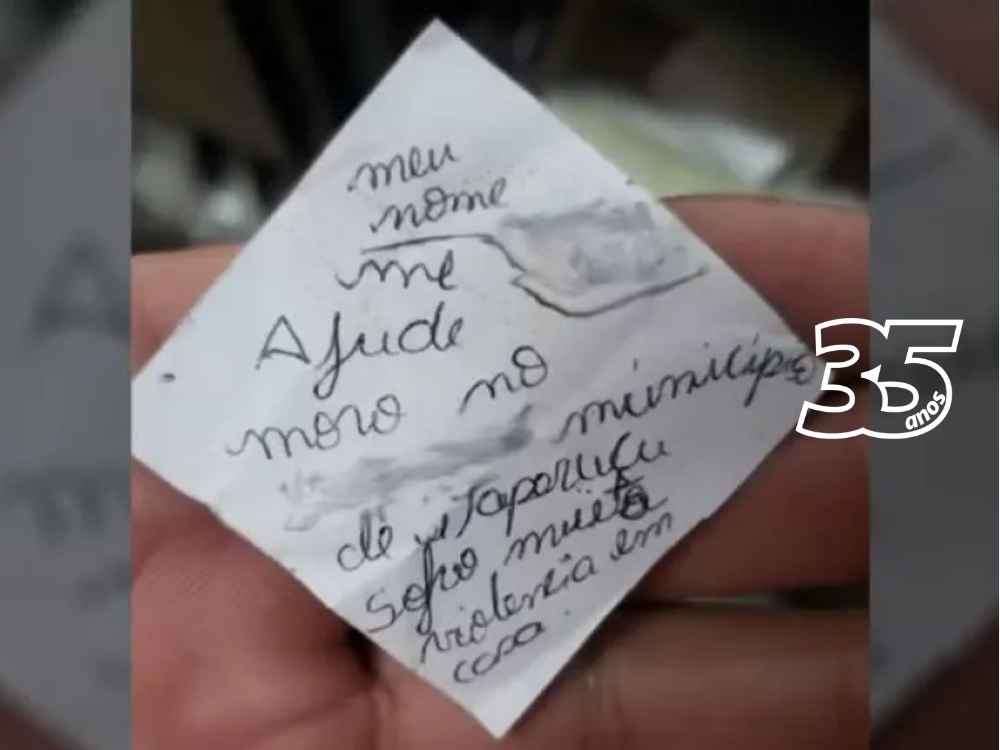 meu
nome
me
Ajude
moro no
município
de itaparuçu
Sofro muita
violencia em
casa.
35
anos